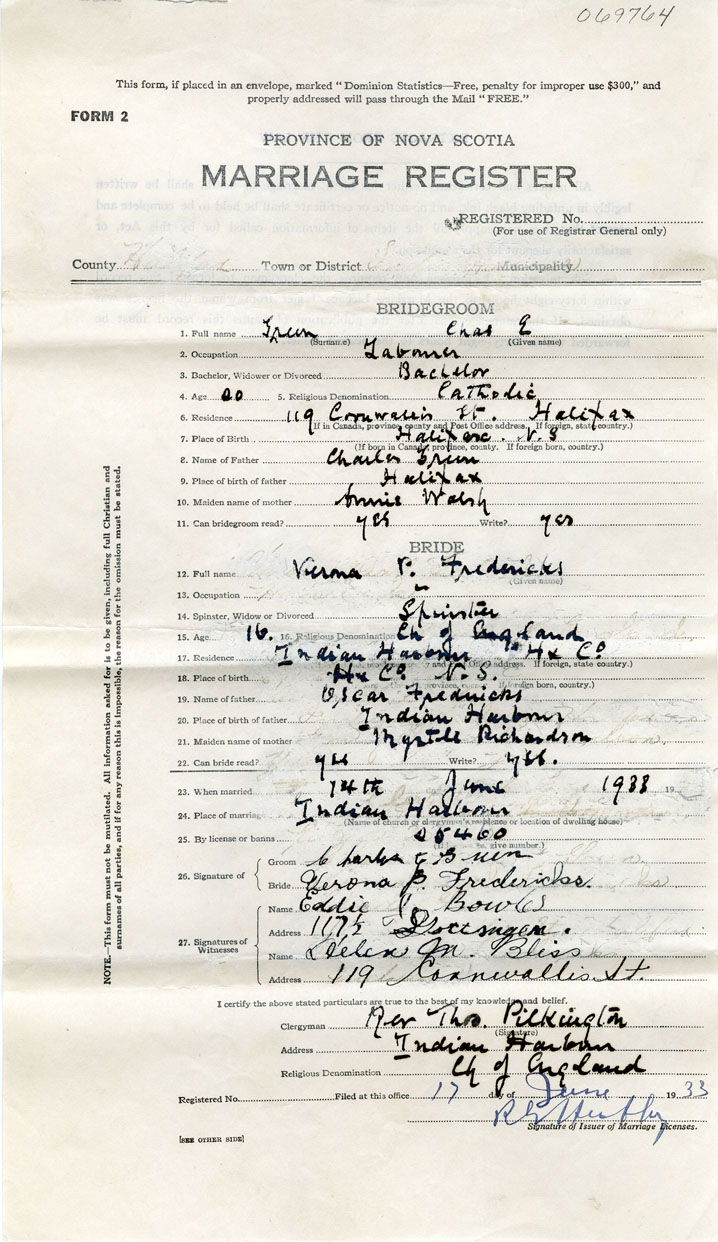 069764
This form, if placed in an envelope, marked "Dominion Statistics—Free, penalty for improper use $300," and
properly addressed will pass through the Mail "FREE."
FORM 2
PROVINCE OF NOVA SCOTIA
MARRIAGE REGISTER
REGISTERED No.
(For use of Registrar General only)
County Halifax Town or District Municipality
BRIDEGROOM
1. Full name Chas E
(Surname) (Given name)
2. Occupation Labourer
3. Bachelor, Widower or Divorced Bachelor
4. Age 20 5. Religious Denomination Catholic
6. Residence 119 Cornwallis St. Halifax
(If in Canada, province county and Post Office address. If foreign, state country.)
7. Place of Birth Halifax N.S
(If born in Canada, province, county. If foreign born, country.)
8. Name of Father Charles
9. Place of birth of father Halifax
10. Maiden name of mother Annie Walsh
11. Can bridegroom read? yes Write? yes
BRIDE
12. Full name Verona V. Fredericks
(Given name)
13. Occupation
14. Spinster, Widow or Divorced Spinster
15. Age 16. 16. Religious Denomination Ch of England
17. Residence Indian Harbour Hx Co
address. If foreign, state country.)
18. Place of birth Hx Co N.S.
foreign born, country.)
19. Name of father Oscar Fredericks
20. Place of birth of father Indian Harbour
21. Maiden name of mother Myrtle Richardson
22. Can bride read? yes Write? yes.
23. When married 14th June 1933 19
24. Place of marriage Indian Harbour
(Name of church or clergyman's residence or location of dwelling house)
25. By license or banns 25460
give number.)
26. Signature of
Groom Charles E
Bride Verona Fredericks.
27. Signatures of Witnesses
Name Eddie Bowles
Address 117½ Gottingen.
Name Helen M. Bliss
Address 119 Cornwallis St.
I certify the above stated particulars are true to the best of my knowledge and belief.
Clergyman Rev Thos. Pilkington
(Signature)
Address Indian Harbour
Religious Denomination Ch of England
Registered No. Filed at this office 17 day of June 19 33
Signature of Issuer of Marriage Licenses.
[SEE OTHER SIDE]
NOTE.—This form must not be mutilated. All information asked for is to be given, including full Christian and
surnames of all parties, and if for any reason this is impossible, the reason for the omission must be stated.